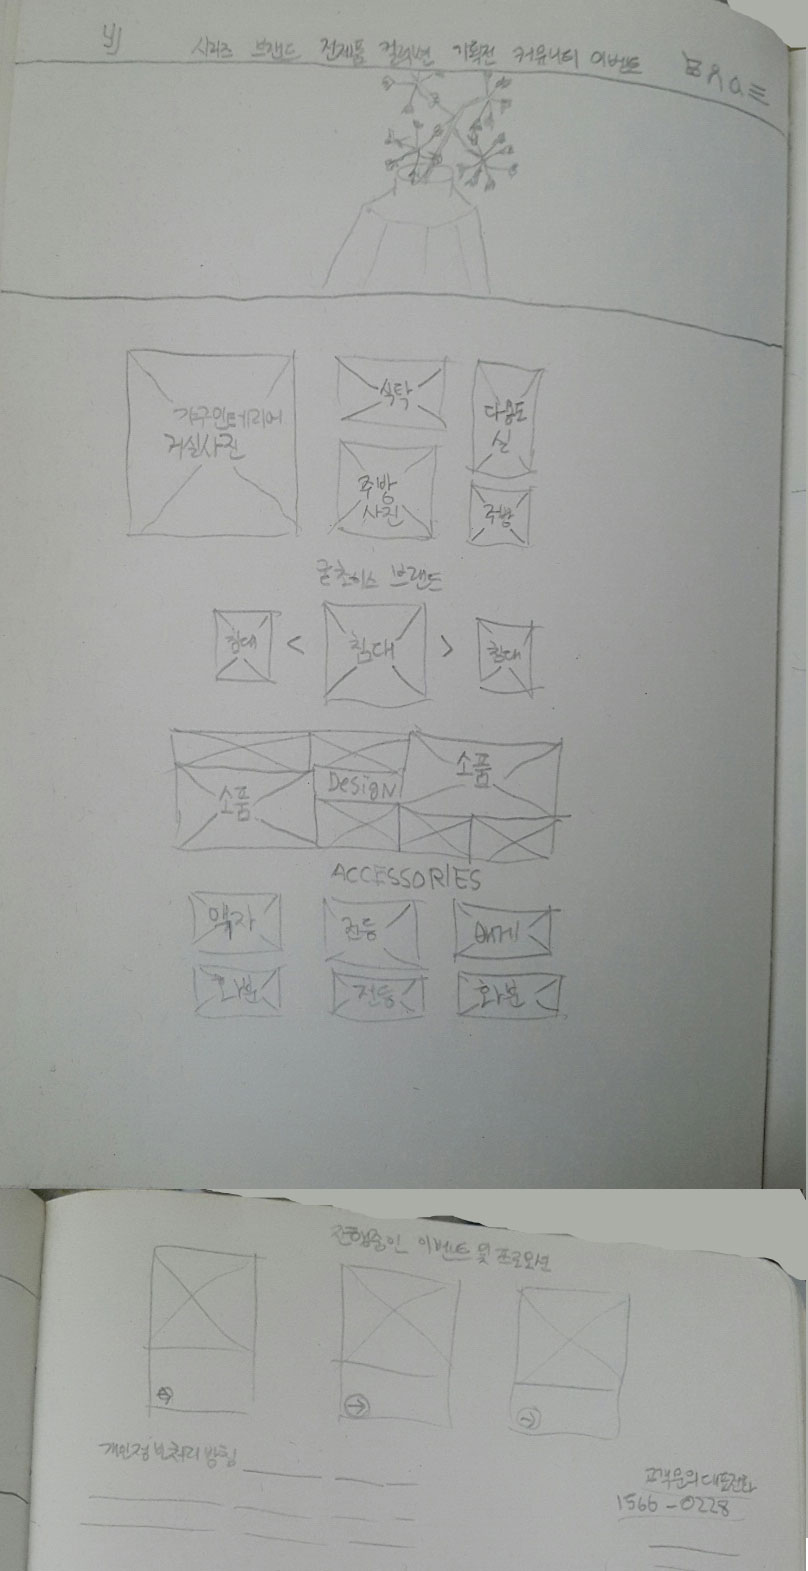 시리즈 브랜드 전제품 컬렉션 기획전 커뮤니티 이벤트
가구인테리어
거실사진
식탁
다용도
실
주방
사진
주방
브랜드
침대 < 침대 > 침대
소품
Design
소품
ACCESSORIES
액자 전등 베게
화분 전등 화분
진행중인 이벤트 및 프로모션
개인정보처리방침
고객문의 대표전화
1566-0228